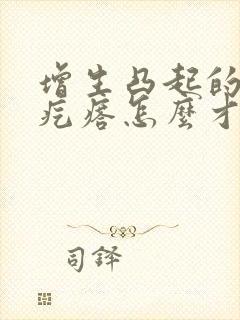 增生凸起的
疙瘩怎麼才
司鐸